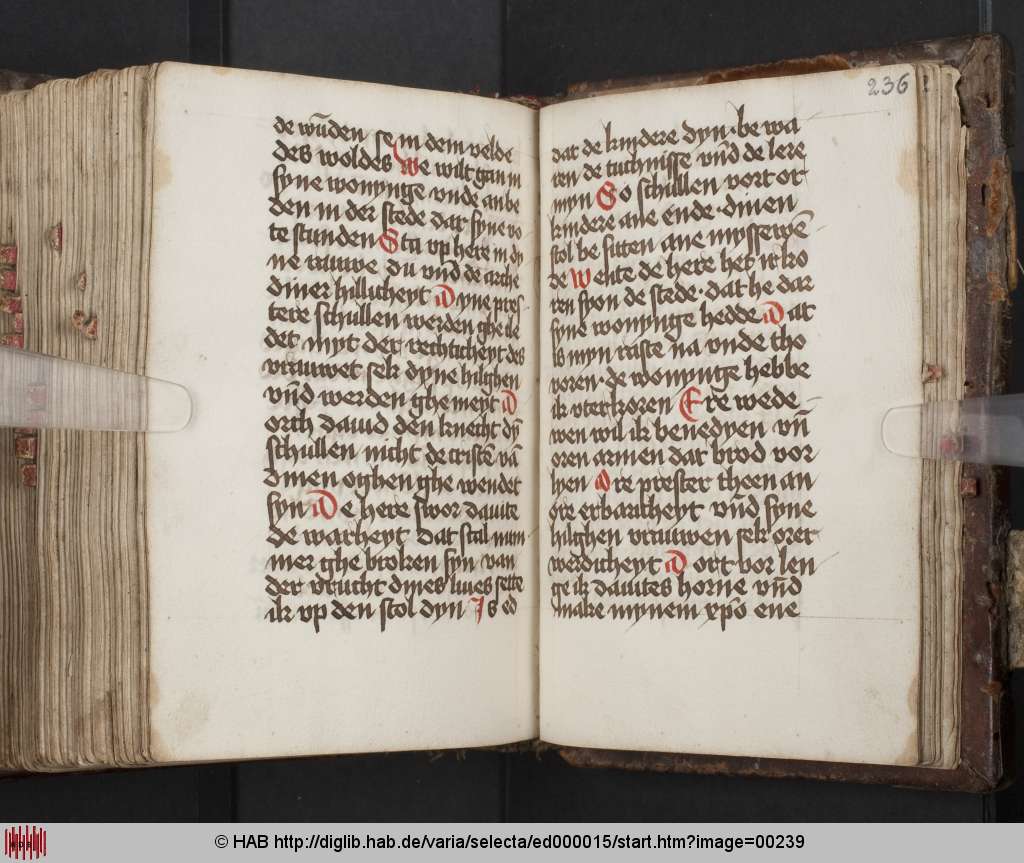 de wūden se in dem velde
des woldes We wilt gan in
syne wonynge vnde an be
den in der stede dar syne vo
te stunden Sta vp here in dy
ne rauwe du vn̄d de arche
diner hillicheyt Dyne pres
tere schullen werden ghe cle
det myt der rechticheyt des
vrauwet sek dyne hilghen
vn̄d werden ghe meyt D
orch dauid den knecht dȳ
schullen nicht de cristē vā
dinen oghen ghe wendet
syn De here swor dauite
de warheyt dat scal num
mer ghe broken syn van
der vrucht dines liues sette
ik vp den stol dyn Is
dat de kindere dyn be wa
ren de tuchnisse vn̄d de lere
myn So schullen vort or
kindere ane ende dinen
stol be sitten ane myssewē
de Wente de here het ir ko
ren syon de stede dat he dar
syne wonynge hedde Dat
is myn raste na vnde tho
voren de wonynge hebbe
ik vterkoren Ere wede
wen wil ik benedyen vn̄
oren armen dat brod vor
lyen Ore prester theen an
ore erbaricheyt vn̄d syne
hilghen vrauwen sek orer
werdicheyt Dort vor len
ge ik dauites horne vn̄d
make mynem xp̄o ene
236
© HAB http://diglib.hab.de/varia/selecta/ed000015/start.htm?image=00239